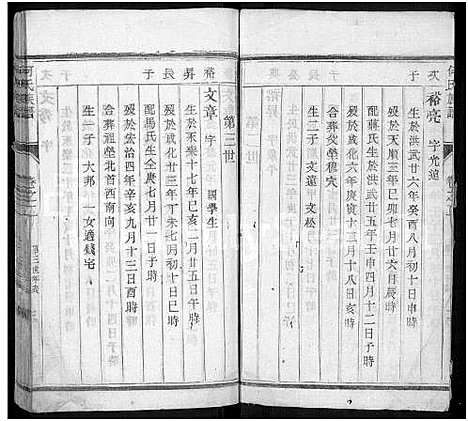 何氏族譜
次
子
裕亮 字光遠
生於洪武廿六年癸酉八月初十日申時
歿於天順三年己卯七月廿六日辰時
配蔣氏生於洪武廿五年壬申四月十二日子時
歿於咸化六年庚寅十三月十
合葬癸塋穆穴
生二子 文遠 文松
第三世
裕昇長子
文章 字 國學生
生於永樂十七年己亥二月廿五日午時
歿於咸化廿三年丁未七月初十日巳時
配馬氏生仝庚七月廿一日子時
歿於弘治四年辛亥九月十三日酉時
合葬祖塋北首西南向
生一子 大邦 一女適錢宅
何氏族譜